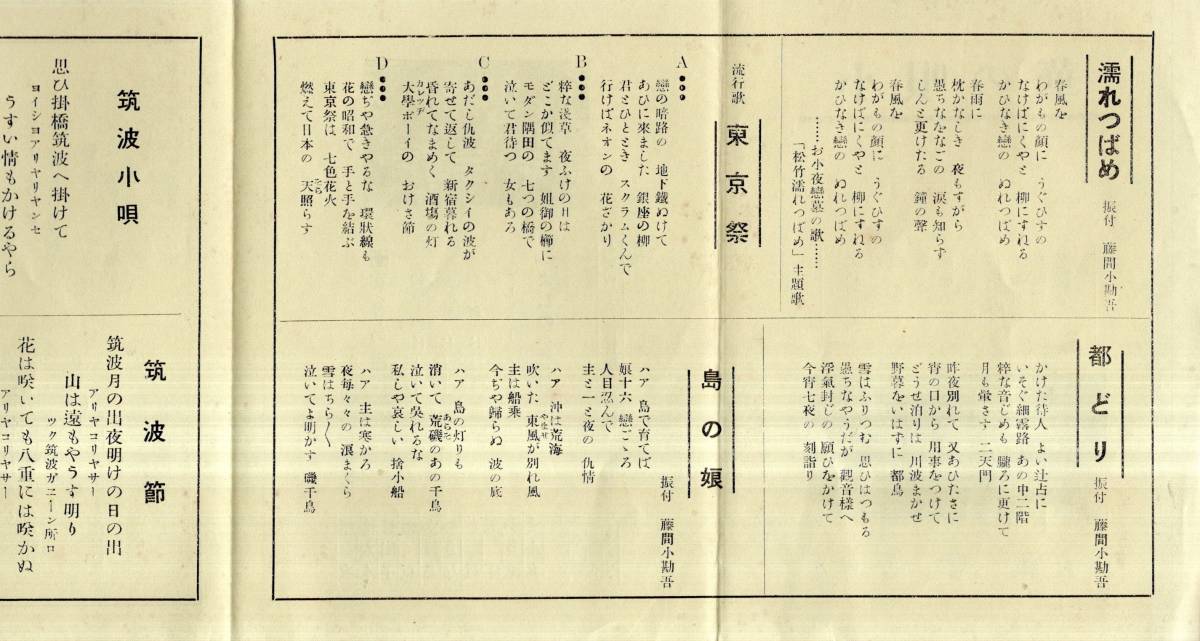 濡れつばめ
振付 藤間小勘吾
春風を
わがもの顔に うぐひすの
なけばにくやと 柳にすねる
かひなき戀の ぬれつばめ
春雨に
枕かなしき 夜もすがら
愚ちなをなごの 涙も知らず
しんと更けたる 鐘の聲
春風を
わがもの顔に うぐひすの
なけばにくやと 柳にすねる
かひなき戀の ぬれつばめ
……お小夜戀慕の歌……
「松竹濡れつばめ」主題歌
流行歌
東京祭
A
戀の暗路の 地下鐵ぬけて
あひに來ました 銀座の柳
君とひととき スクラムくんで
行けばネオンの 花ざかり
B
粹な淺草 夜ふけの月は
どこか似てます 姐御の櫛に
モダン隅田の 七つの橋で
泣いて君待つ 女もある
C
あだし仇波 タクシイの波が
寄せて返して 新宿暮れる
昏れてなまめく 酒場の灯
大學ボーイの おけさ節
カレッヂ
D
戀ぢや急きやるな 環狀線も
花の昭和で 手と手を結ぶ
東京祭は 七色花火
燃えて日本の 天照らす
そら
都どり
振付 藤間小勘吾
かけた待人 よい辻占に
いそぐ細露路 あの中二階
粹な音じめも 朧ろに更けて
月も暈さす 二天門
昨夜別れて 又あひたさに
宵の口から 用事をつけて
どうせ泊りは 川波まかせ
野暮をいはずに 都鳥
雪はふりつむ 思ひはつもる
愚ちなやうだが 觀音樣へ
浮氣封じの 願ひをかけて
今宵七夜の 刻詣り
島の娘
振付 藤間小勘吾
ハア 島で育てば
娘十六 戀ごゝろ
人目忍んで
主と一と夜の 仇情
ハア 沖は荒海
吹いた 東風が別れ風
やませ
主は船乘
今ぢや歸らぬ 波の底
ハア 島の灯りも
消いて 荒磯のあの千鳥
あらそ
泣いて吳れるな
私しや哀しい 捨小船
ハア 主は寒かろ
夜每々々の 浪まくら
雪はちら〱
泣いてよ明かす 磯千鳥
筑波小唄
思ひ掛橋筑波へ掛けて
ヨイショアリヤリヤンセ
うすい情もかけるやら
筑波節
筑波月の出夜明けの日の出
アリヤコリヤサー
山は遠もやうす明り
ツック筑波ガニーン所ロ
花は咲いても八重には咲かぬ
アリヤコリヤサー